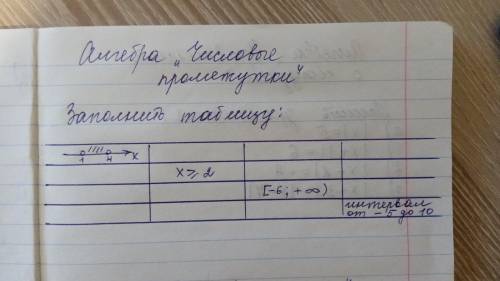 Алгебра „Числовые
промежутки"
Заполнить таблицу:
1 4 x
x ≥ 2
[-6; +∞)
интервал
от -5 до 10